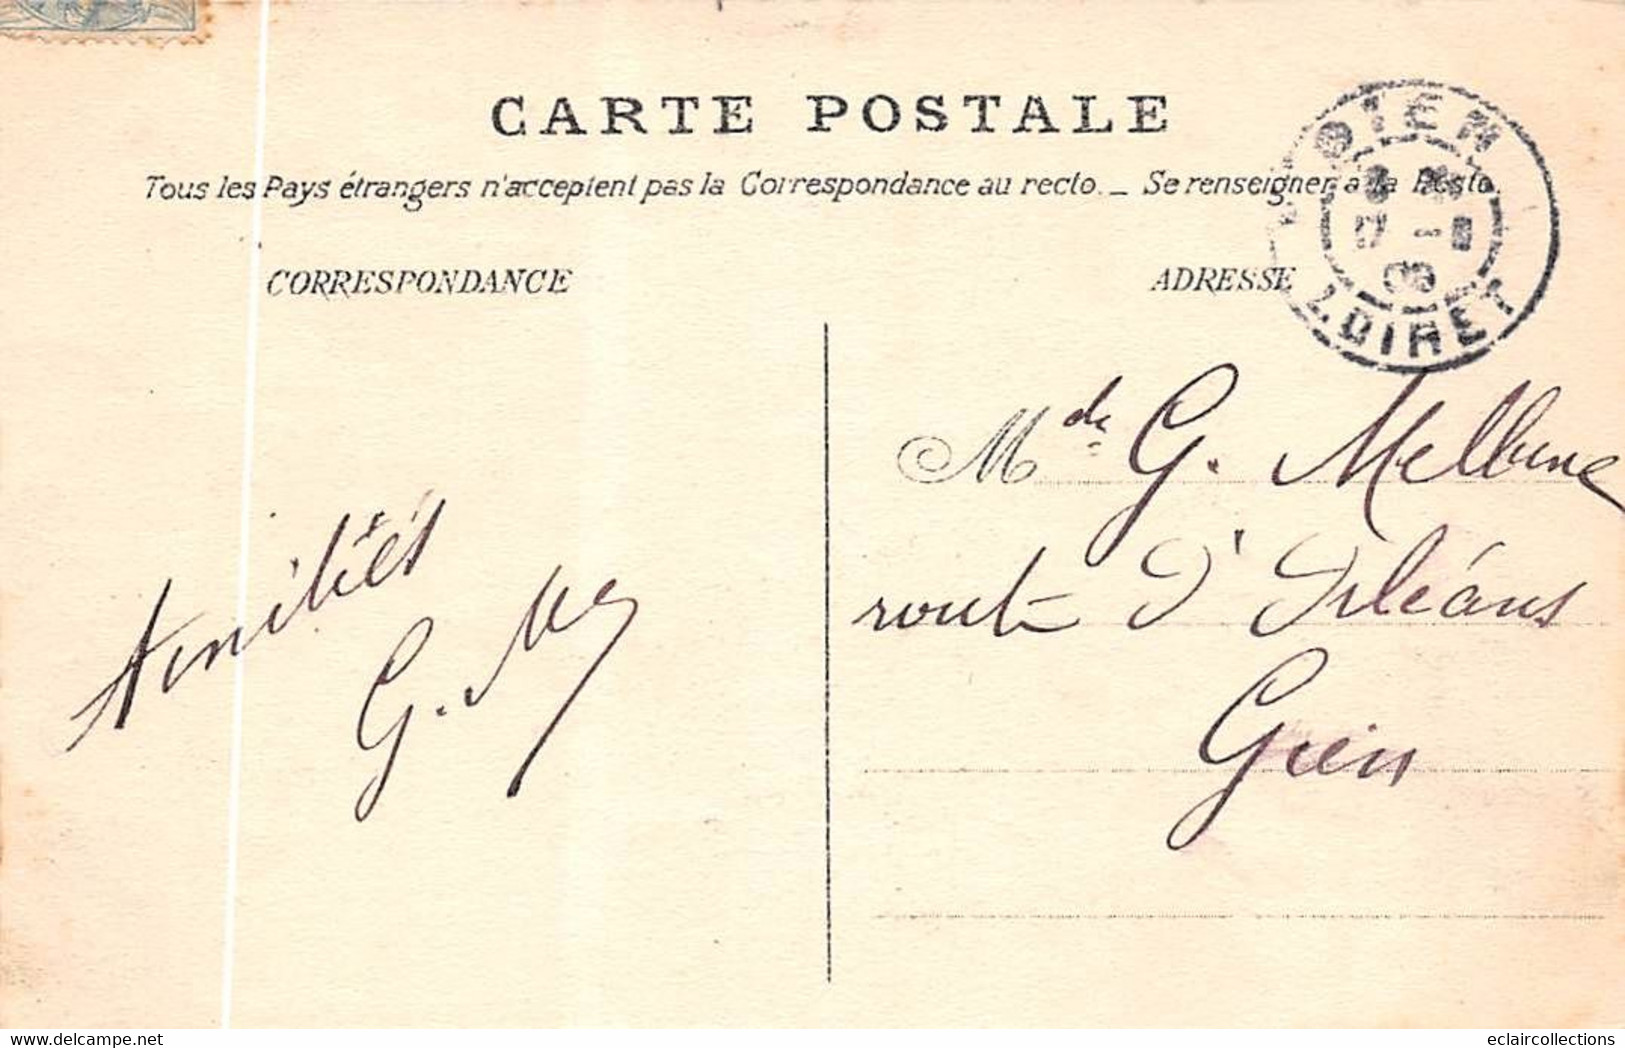 CARTE POSTALE
Tous les Pays étrangers n'acceptent pas la Correspondance au recto. _ Se renseigner à la Poste.
CORRESPONDANCE
ADRESSE
GIEN
LOIRET
Mde G. Mellune
route d'Orléans
Gien
Amitiés
G. M
eclaircollections